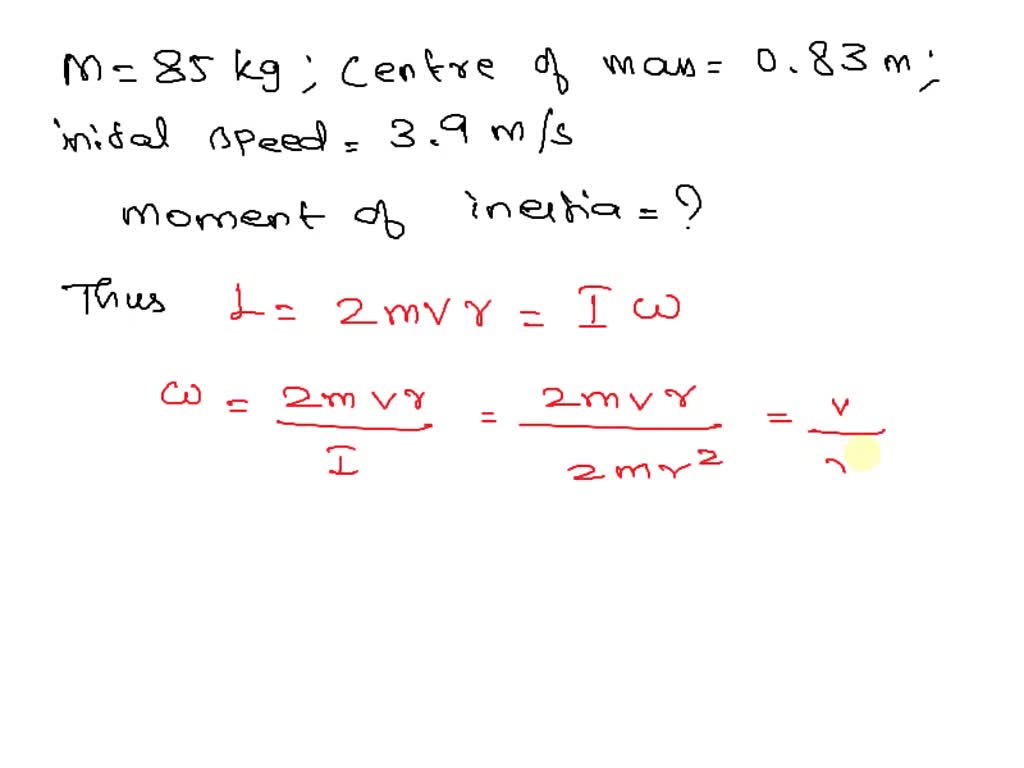 M = 85 kg ; Centre of mass = 0.83 m ;
inital speed = 3.9 m/s
moment of inertia = ?
Thus L = 2mvr = I ω
ω = 2mvr / I = 2mvr / 2mr² = v /